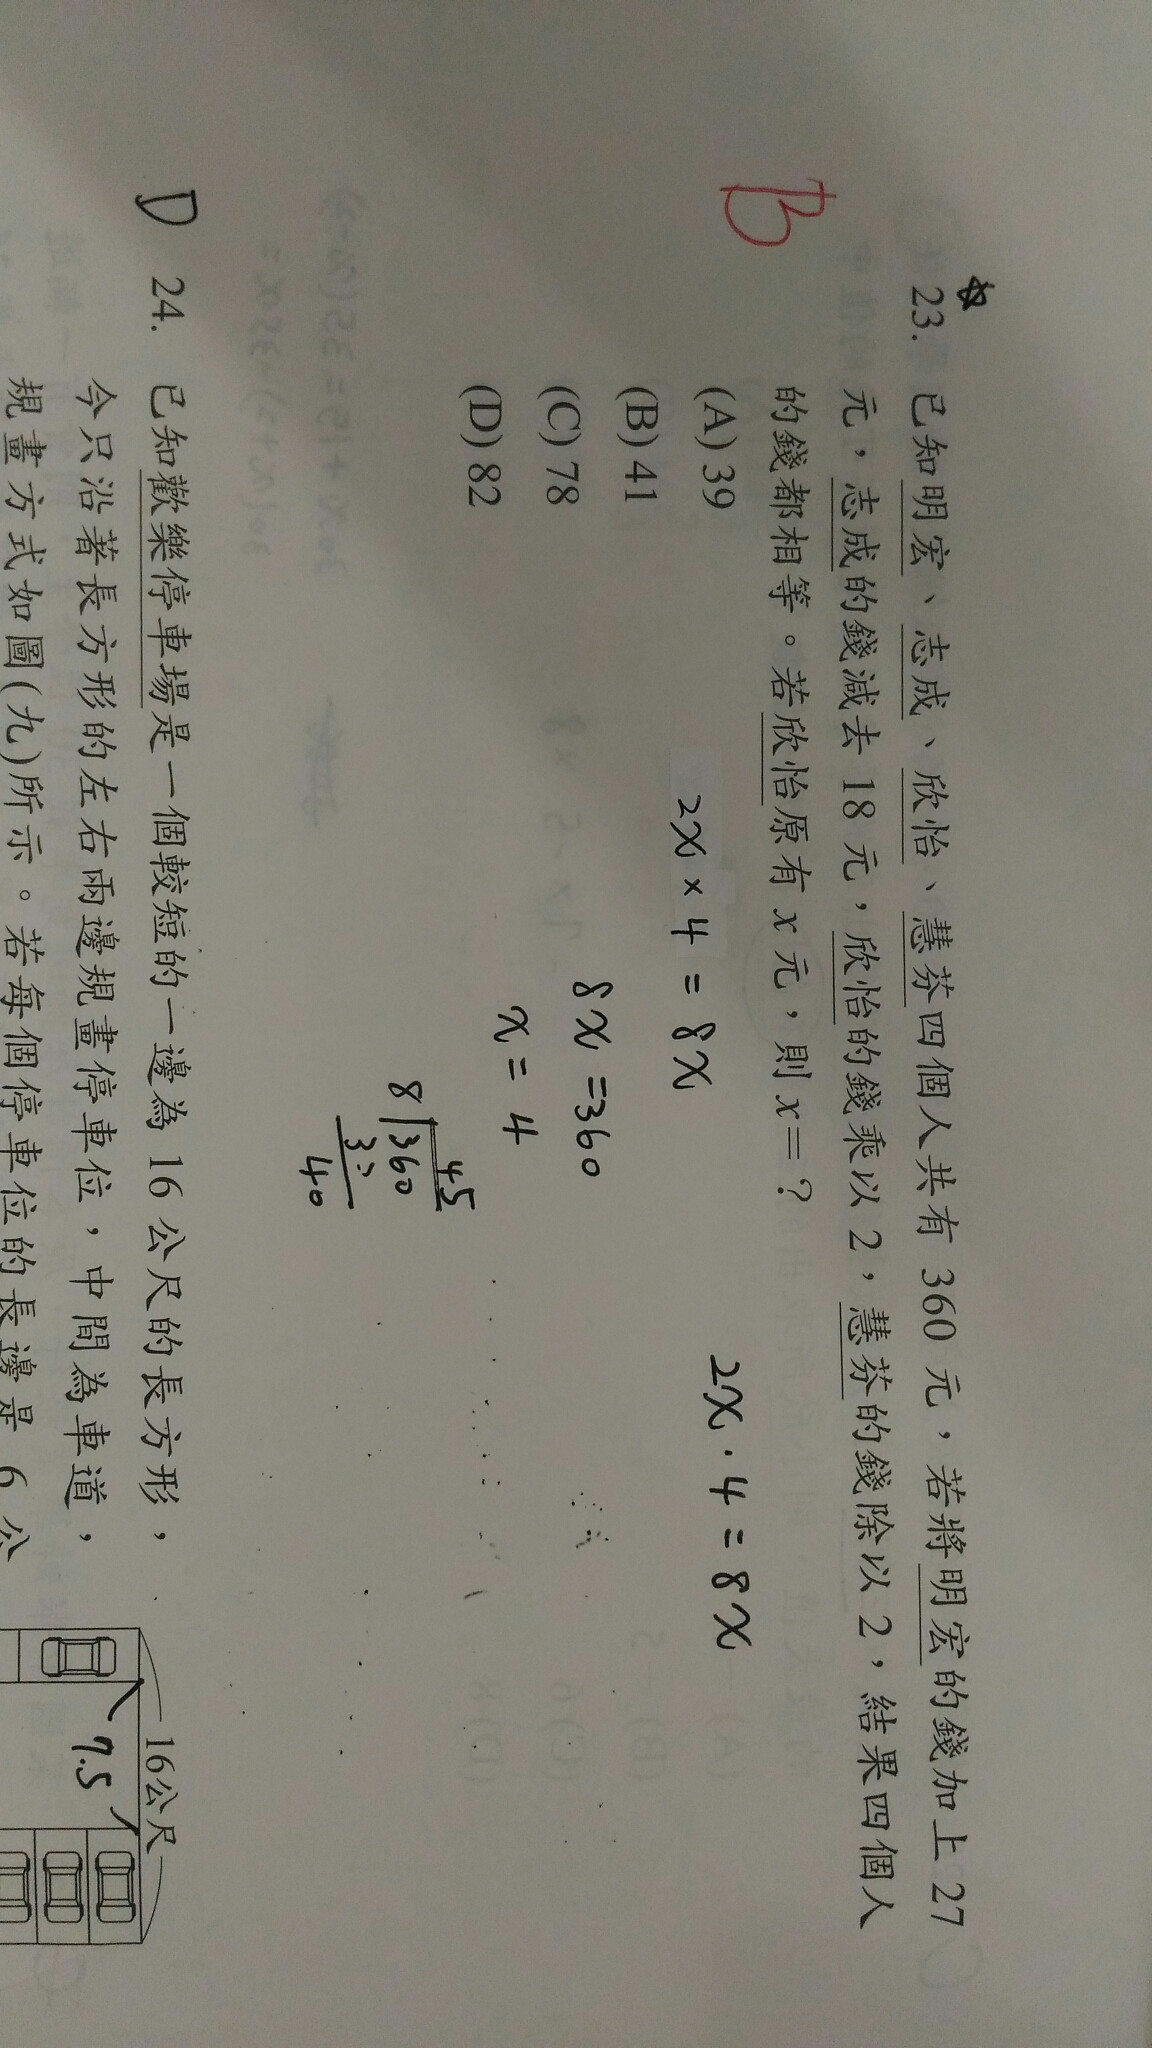 B
☆
23. 已知明宏、志成、欣怡、慧芬四個人共有 360 元，若將明宏的錢加上 27
元，志成的錢減去 18 元，欣怡的錢乘以 2，慧芬的錢除以 2，結果四個人
的錢都相等。若欣怡原有 x 元，則 x=？
(A) 39
(B) 41
(C) 78
(D) 82
2x × 4 = 8x
2x · 4 = 8x
8x = 360
x = 4
45
8 360
40
D 24. 已知歡樂停車場是一個較短的一邊為 16 公尺的長方形，
今只沿著長方形的左右兩邊規畫停車位，中間為車道，
規畫方式如圖(九)所示。若每個停車位的長邊是 6 公
16公尺
7.5